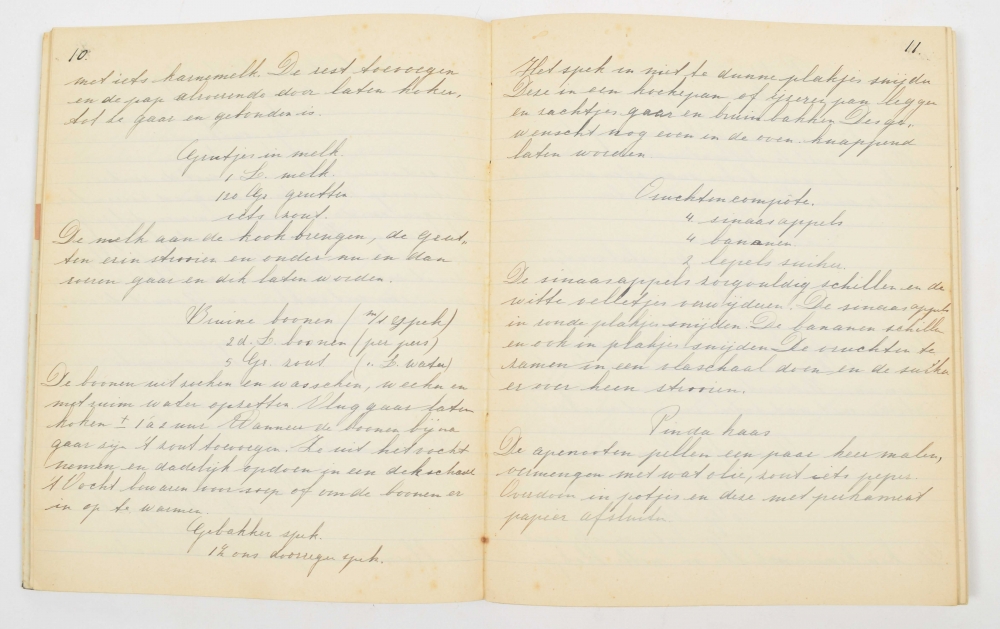 10.
met iets karnemelk. De rest toevoegen
en de pap al roerende door laten koken,
tot ze gaar en gebonden is.
Grutjes in melk.
1 L. melk.
120 Gr. grutten
iets zout.
De melk aan de kook brengen, de grut-
ten erin strooien en onder nu en dan
roeren gaar en dik laten worden.
Bruine boonen (m/s spek)
2 d. L. boonen (per pers)
5 Gr. zout (" L. water)
De boonen uitzoeken en wasschen, weeken en
met ruim water opzetten Vlug gaar laten
koken ± 1 a 2 uur. Wanneer de boonen bijna
gaar zijn 't zout toevoegen. Ze uit het vocht
nemen en dadelijk opdoen in een dekschaal
't Vocht bewaren voor soep of om de boonen er
in op te warmen.
Gebakken spek.
1½ ons doorregen spek.
11.
Het spek in niet te dunne plakjes snijden
Deze in een koekepan of ijzeren pan leggen
en zachtjes gaar en bruin bakken Des ge-
wenscht nog even in de oven knappend
laten worden.
Vruchtencompôte.
4 sinaasappels
4 bananen.
2 lepels suiker.
De sinaasappels zorgvuldig schillen en de
witte velletjes verwijderen. De sinaasappels
in ronde plakjes snijden. De bananen schillen
en ook in plakjes snijden De vruchten te
zamen in een vlaschaal doen en de suiker
er over heen strooien.
Pinda kaas
De apenooten pellen een paar keer malen,
vermengen met wat olie, zout iets peper.
Overdoen in potjes en deze met perkament
papier afsluiten.